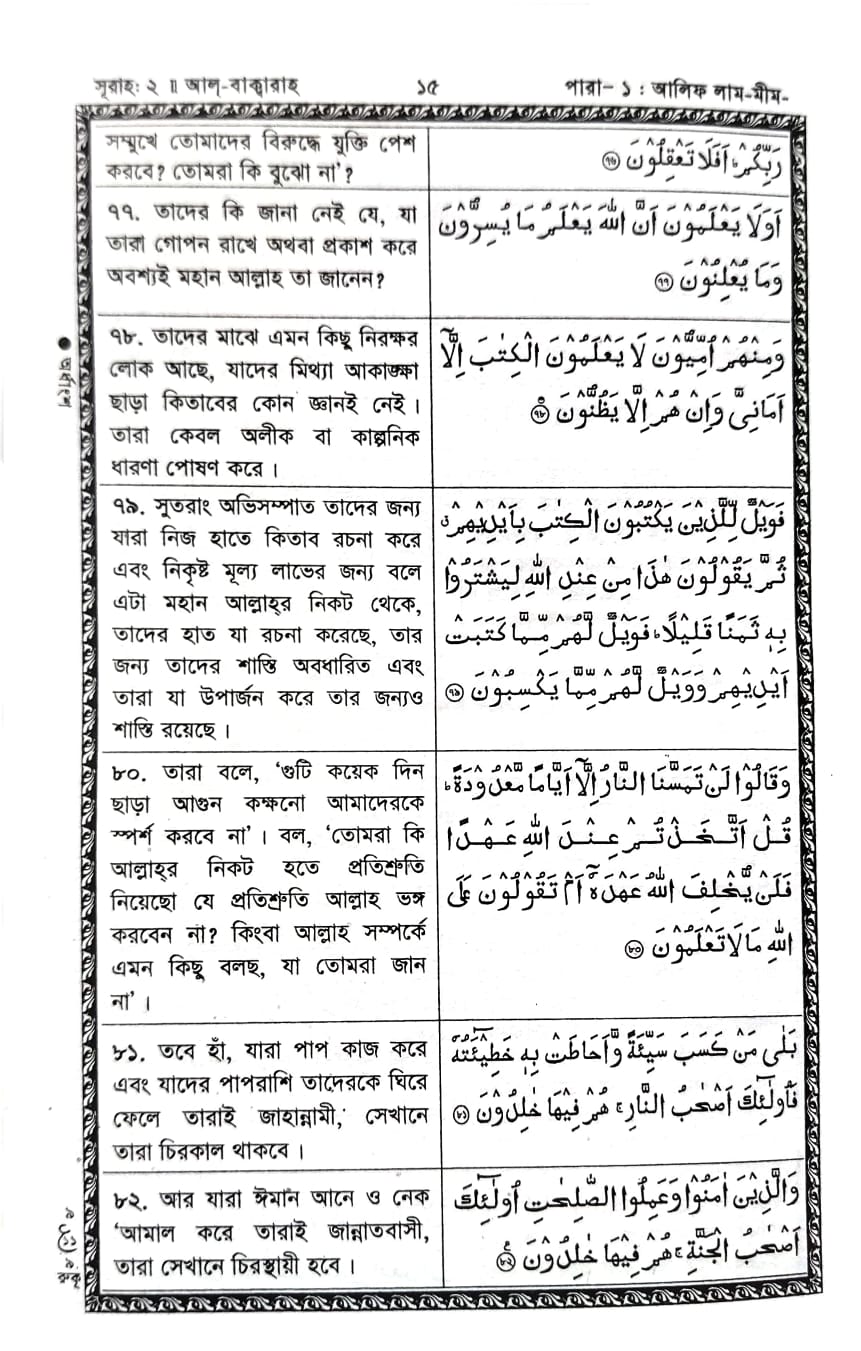 সূরাহ: ২ ॥ আল-বাক্বারাহ
১৫
পারা- ১ : আলিফ লাম-মীম-
সম্মুখে তোমাদের বিরুদ্ধে যুক্তি পেশ
করবে? তোমরা কি বুঝো না'?
رَبِّكُمْ ؕ اَفَلَا تَعْقِلُوْنَ ﴿۷۶﴾
৭৭. তাদের কি জানা নেই যে, যা
তারা গোপন রাখে অথবা প্রকাশ করে
অবশ্যই মহান আল্লাহ তা জানেন?
اَوَلَا يَعْلَمُوْنَ اَنَّ اللّٰهَ يَعْلَمُ مَا يُسِرُّوْنَ
وَمَا يُعْلِنُوْنَ ﴿۷۷﴾
৭৮. তাদের মাঝে এমন কিছু নিরক্ষর
লোক আছে, যাদের মিথ্যা আকাঙ্ক্ষা
ছাড়া কিতাবের কোন জ্ঞানই নেই।
তারা কেবল অলীক বা কাল্পনিক
ধারণা পোষণ করে।
وَمِنْهُمْ اُمِّيُّوْنَ لَا يَعْلَمُوْنَ الْكِتٰبَ اِلَّاۤ
اَمَانِيَّ وَاِنْ هُمْ اِلَّا يَظُنُّوْنَ ﴿۷۸﴾
৭৯. সুতরাং অভিসম্পাত তাদের জন্য
যারা নিজ হাতে কিতাব রচনা করে
এবং নিকৃষ্ট মূল্য লাভের জন্য বলে
এটা মহান আল্লাহ্‌র নিকট থেকে,
তাদের হাত যা রচনা করেছে, তার
জন্য তাদের শাস্তি অবধারিত এবং
তারা যা উপার্জন করে তার জন্যও
শাস্তি রয়েছে।
فَوَيْلٌ لِّلَّذِيْنَ يَكْتُبُوْنَ الْكِتٰبَ بِاَيْدِيْهِمْ ۗ
ثُمَّ يَقُوْلُوْنَ هٰذَا مِنْ عِنْدِ اللّٰهِ لِيَشْتَرُوْا
بِهٖ ثَمَنًا قَلِيْلًا ؕ فَوَيْلٌ لَّهُمْ مِّمَّا كَتَبَتْ
اَيْدِيْهِمْ وَوَيْلٌ لَّهُمْ مِّمَّا يَكْسِبُوْنَ ﴿۷۹﴾
৮০. তারা বলে, 'গুটি কয়েক দিন
ছাড়া আগুন কক্ষনো আমাদেরকে
স্পর্শ করবে না'। বল, 'তোমরা কি
আল্লাহ্‌র নিকট হতে প্রতিশ্রুতি
নিয়েছো যে প্রতিশ্রুতি আল্লাহ ভঙ্গ
করবেন না? কিংবা আল্লাহ সম্পর্কে
এমন কিছু বলছ, যা তোমরা জান
না'।
وَقَالُوْا لَنْ تَمَسَّنَا النَّارُ اِلَّاۤ اَيَّامًا مَّعْدُوْدَةً ؕ
قُلْ اَتَّخَذْتُمْ عِنْدَ اللّٰهِ عَهْدًا
فَلَنْ يُّخْلِفَ اللّٰهُ عَهْدَهٗۤ اَمْ تَقُوْلُوْنَ عَلَى
اللّٰهِ مَا لَا تَعْلَمُوْنَ ﴿۸۰﴾
৮১. তবে হাঁ, যারা পাপ কাজ করে
এবং যাদের পাপরাশি তাদেরকে ঘিরে
ফেলে তারাই জাহান্নামী, সেখানে
তারা চিরকাল থাকবে।
بَلٰى مَنْ كَسَبَ سَيِّئَةً وَّاَحَاطَتْ بِهٖ خَطِيْٓئَتُهٗ
فَاُولٰٓئِكَ اَصْحٰبُ النَّارِ ۚ هُمْ فِيْهَا خٰلِدُوْنَ ﴿۸۱﴾
৮২. আর যারা ঈমান আনে ও নেক
'আমাল করে তারাই জান্নাতবাসী,
তারা সেখানে চিরস্থায়ী হবে।
وَالَّذِيْنَ اٰمَنُوْا وَعَمِلُوا الصّٰلِحٰتِ اُولٰٓئِكَ
اَصْحٰبُ الْجَنَّةِ ۚ هُمْ فِيْهَا خٰلِدُوْنَ ﴿۸۲﴾
অর্ধাংশ
রুকূ